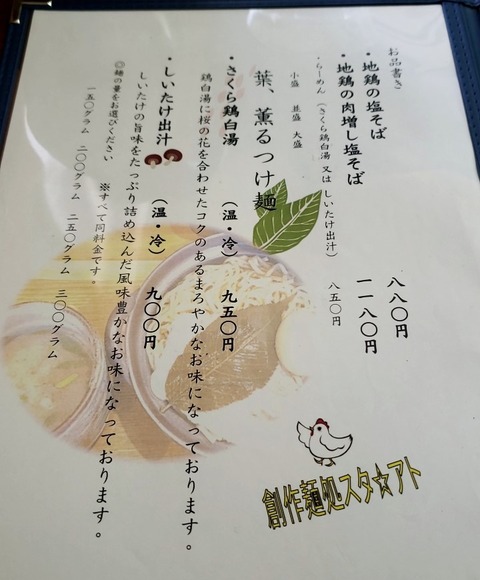 お品書き
・地鶏の塩そば 八八〇円
・地鶏の肉増し塩そば 一一八〇円
・らーめん（さくら鶏白湯 又は しいたけ出汁） 八五〇円
小盛 並盛 大盛
葉、薫るつけ麺
・さくら鶏白湯 （温・冷） 九五〇円
鶏白湯に桜の花を合わせたコクのあるまろやかなお味になっております。
・しいたけ出汁 （温・冷） 九〇〇円
しいたけの旨味をたっぷり詰め込んだ風味豊かなお味になっております。
◎麺の量をお選びください ※すべて同料金です。
一五〇グラム 二〇〇グラム 二五〇グラム 三〇〇グラム
創作麺処スタ☆アト